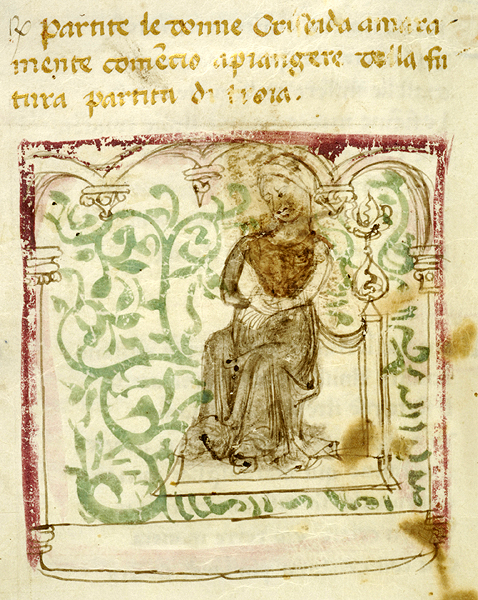 partite le donne Criseida amara
mente comẽcio apiangere della fu
tura partita di troia.